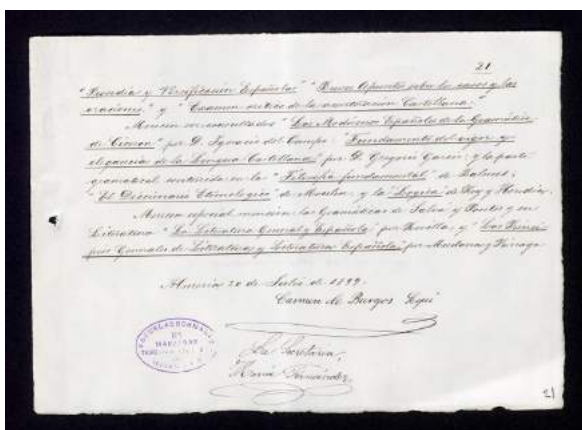 21
"Prosodia y Versificación Españolas" "Breves Apuntes sobre los casos y las
oraciones," y "Examen crítico de la acentuación Castellana."
Merecen ser consultados "Los Modismos Españoles de la Gramática
de" por D. Ignacio del Campo: "Fundamento del vigor y
elegancia de la Lengua Castellana" por D. Gregorio Garcés; y la parte
gramatical contenida en la "Filosofía fundamental" de Balmes;
"El Diccionario Etimológico" de y la "Logica" de Rey y Heredia.
Merecen especial mención las Gramáticas de Salvá y y en
Literatura "La Literatura General y Española" por Revilla y "Los Princi-
pios Generales de Literatura y Literatura Española" por Mendoza y
Almeria 20 de Julio de 1899.
Carmen de Burgos Seguí
La Secretaria,
María Fernández
21